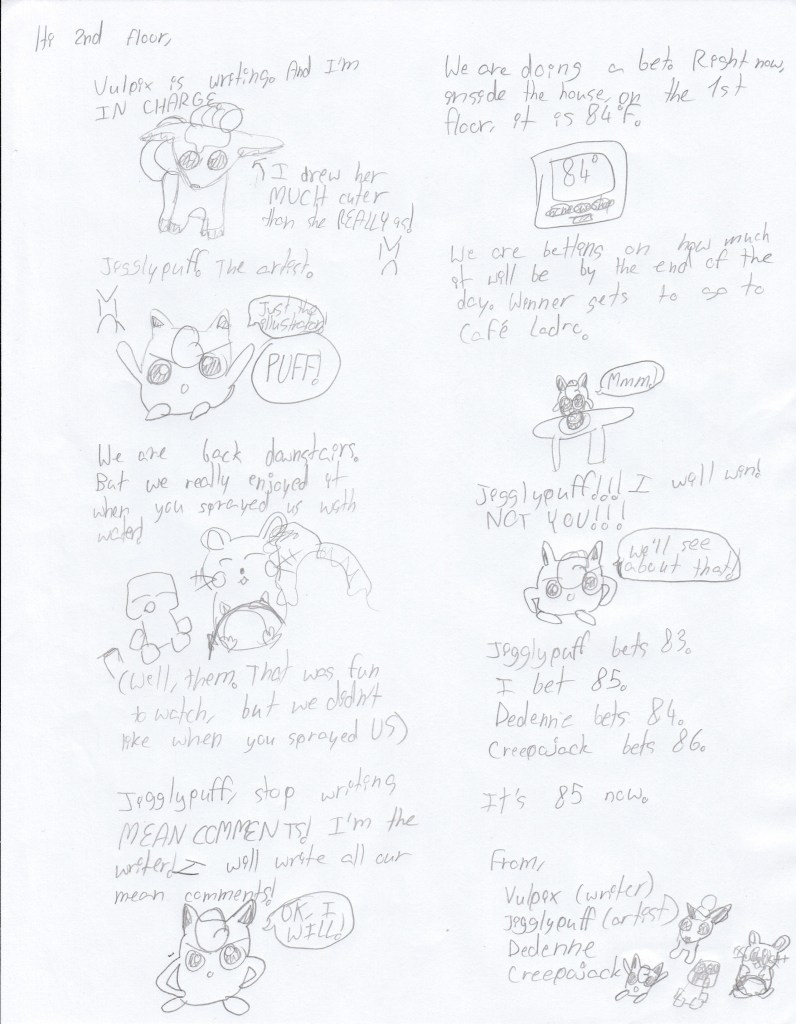 Hi 2nd floor,
Vulpix is writing. And I'm
IN CHARGE.
I drew her
MUCH cuter
than she REALLY is!
Jigglypuff. The artist.
Just the
illustrator!
PUFF!
We are back downstairs.
But we really enjoyed it
when you sprayed us with
water!
(Well, them. That was fun
to watch, but we didn't
like when you sprayed US)
Jigglypuff, stop writing
MEAN COMMENTS! I'm the
writer! I will write all our
mean comments!
OK, I
WILL!
We are doing a bet. Right now,
inside the house, on the 1st
floor, it is 84°F.
84°
We are betting on how much
it will be by the end of the
day. Winner gets to go to
Café Ladro.
Mmm!
Jigglypuff!!! I will win!
NOT YOU!!!
We'll see
about that!
Jigglypuff bets 83.
I bet 85.
Dedenne bets 84.
Creepojack bets 86.
It's 85 now.
From,
Vulpix (writer)
Jigglypuff (artist)
Dedenne
Creepojack